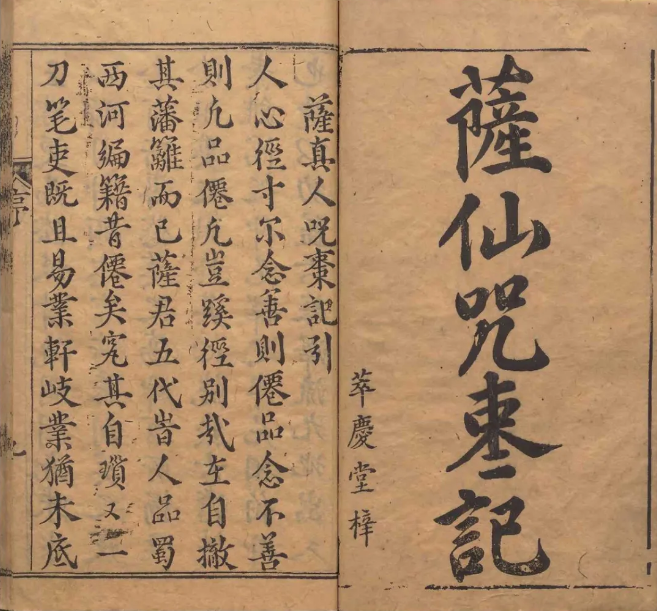 薩仙咒枣記
萃慶堂梓
薩真人呪棗記引
人心徑寸尔念善則僊品念不善
則凢品僊凢豈蹊徑别㢤在自撤
其藩籬而已薩君五代旹人品蜀
西河編籍昔僊矣究其自瑣又一
刀笔吏既且易業軒岐業猶未底